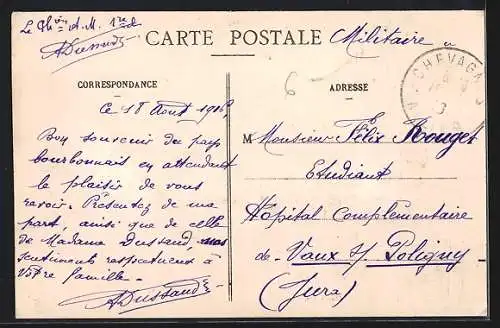 Le Phien A.M. 1re cl
ADussaud
CARTE POSTALE
Militaire
CHEVAGN
6
CORRESPONDANCE
ADRESSE
ce 18 Aout 1916,
Bon souvenir du pays
bourbonnais en attendant
le plaisir de vous
revoir. Présentez de ma
part, ainsi que de celle
de Madame Dussaud, nos
sentiments respectueux à
Vôtre famille-
ADussaud
M Monsieur Félix Rouget
Etudiant
Hôpital Complémentaire
de- Vaux s/ Poligny
(Jura)